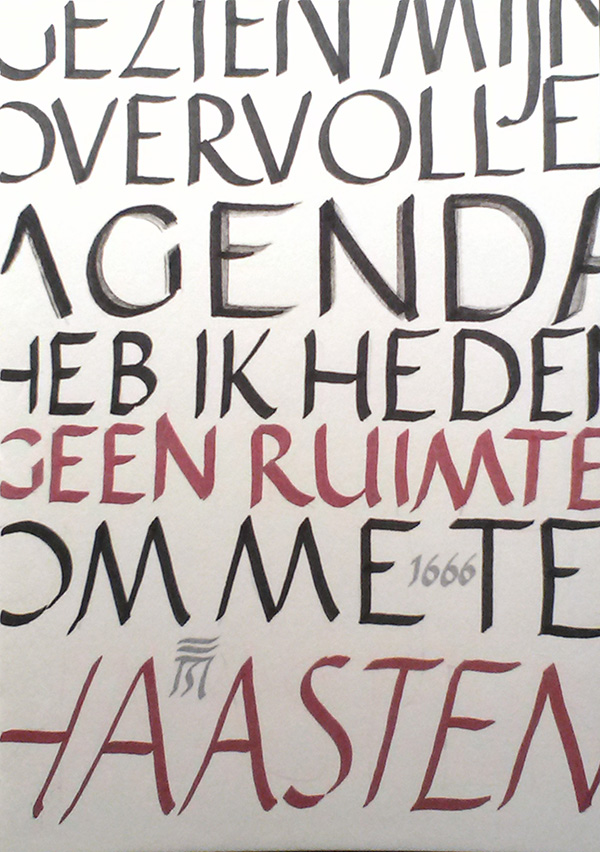 GEZIEN MIJN
OVERVOLLE
AGENDA
HEB IK HEDEN
GEEN RUIMTE
OM ME TE
1666
HAASTEN